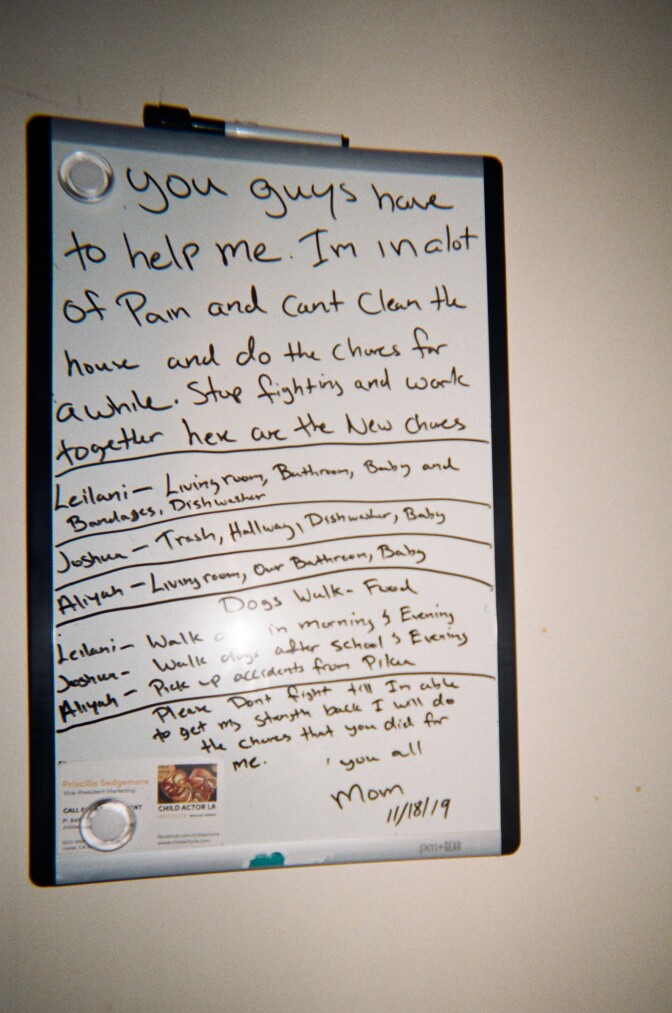 you guys have
to help me. Im in alot
of Pain and Cant Clean the
house and do the Chores for
awhile. Stop fighting and work
together here are the New Chores
Leilani - Livingroom, Bathroom, Baby and
Bandages, Dishwasher
Joshua - Trash, Hallway, Dishwasher, Baby
Aliyah - Livingroom, Our Bathroom, Baby
Dogs Walk - Food
Leilani - Walk in morning & Evening
Joshua - Walk dogs after school & Evening
Aliyah - Pick up accidents from
Please Dont fight till Im able
to get my Strength back I will do
the Chores that you did for
me. you all
Mom
11/18/19
Priscilla Sedgemore
Vice-President Marketing
CHILD ACTOR LA
pen+GEAR